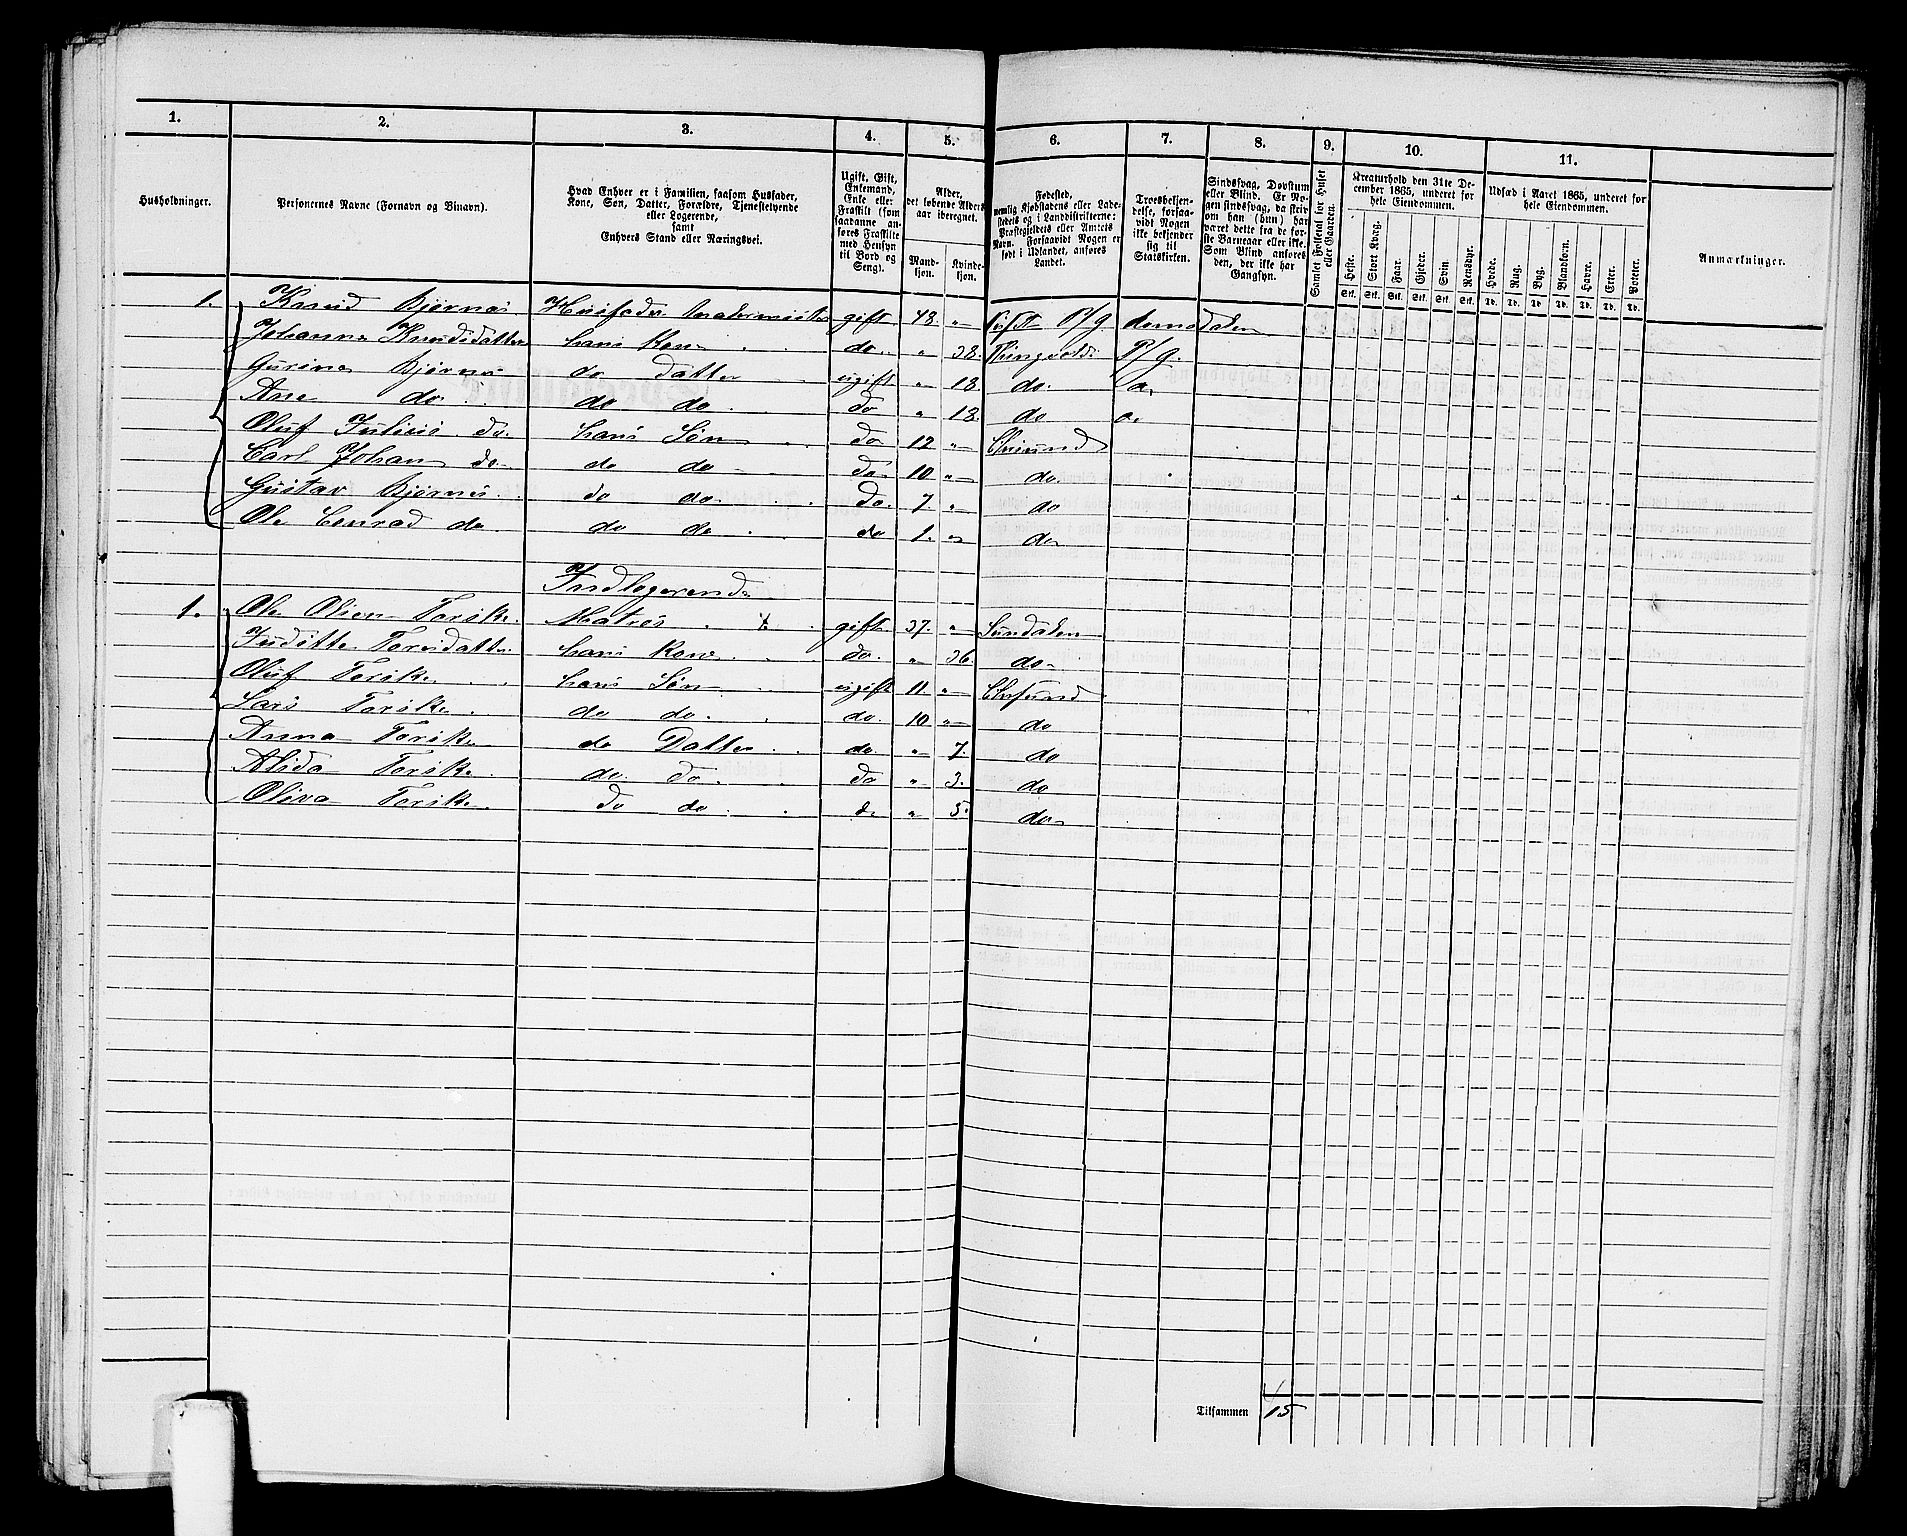 1. 2. 3. 4. 5. 6. 7. 8. 9. 10. 11.
Husholdninger.
Personernes Navne (Fornavn og Binavn).
Hvad Enhver er i Familien, saasom Husfader,
Kone, Søn, Datter, Forældre, Tjenestetyende
eller Logerende,
samt
Enhvers Stand eller Næringsvei.
Ugift, Gift,
Enkemand,
Enke eller
Fraskilt (som
saadanne an-
føres Fraskilte
med Hensyn
til Bord og
Seng).
Alder,
det løbende Alders-
aar iberegnet.
Mand-
kjøn.
Kvinde-
kjøn.
Fødested,
nemlig Kjøbstadens eller Lade-
stedets og i Landdistrikterne:
Præstegjeldets eller Amtets
Navn. Forsaavidt Nogen er
født i Udlandet, anføres
Landet.
Troesbekjen-
delse, forsaa-
vidt Nogen
ikke bekjender
sig til
Statskirken.
Sindssvag, Døvstum
eller Blind. Er No-
gen sindssvag, da skriv
om han (hun) har
været dette fra de før-
ste Barneaar eller ikke.
Som Blind anføres
den, der ikke har
Gangsyn.
Samlet Folketal for Huset
eller Gaarden.
Kreaturhold den 31te De-
cember 1865, underet for
hele Eiendommen.
Heste. Stort Kvæg. Faar. Gjeder. Svin. Rensdyr.
Stk. Stk. Stk. Stk. Stk. Stk.
Udsæd i Aaret 1865, underet for
hele Eiendommen.
Hvede. Rug. Byg. Blandkorn. Havre. Erter. Poteter.
Td. Td. Td. Td. Td. Td. Td.
Anmærkninger.
1. Knud Bjørnøs Husfader gift 48. " P/g Romsdalen
Johanne Knudsdatter hans Kone do. " 38. P/g.
Gurine Bjørnøs do Datter ugift " 18 do.
Ane do. do do. do " 18. do
Oluf Julius do. hans Søn do 12 " Chrsund
Carl Johan do do do do 10 " do.
Gustav Bjørnøs do do do. 7. " do
Ole Conrad do do do do 1. " do
Indlogerende
1. Ole Olsen Torske. Matros gift 37. " Sundalen
Torsdatter hans Kone do. " 36. do
Oluf Torske hans Søn ugift 11 " Chrsund
Lars Torske do do. do. 10 " do
Anna Torske do Datter do. " 7. do
Alida Torske. do. do. do " 3. do
Oliva Torske. do do do " 5. do
Tilsammen 15